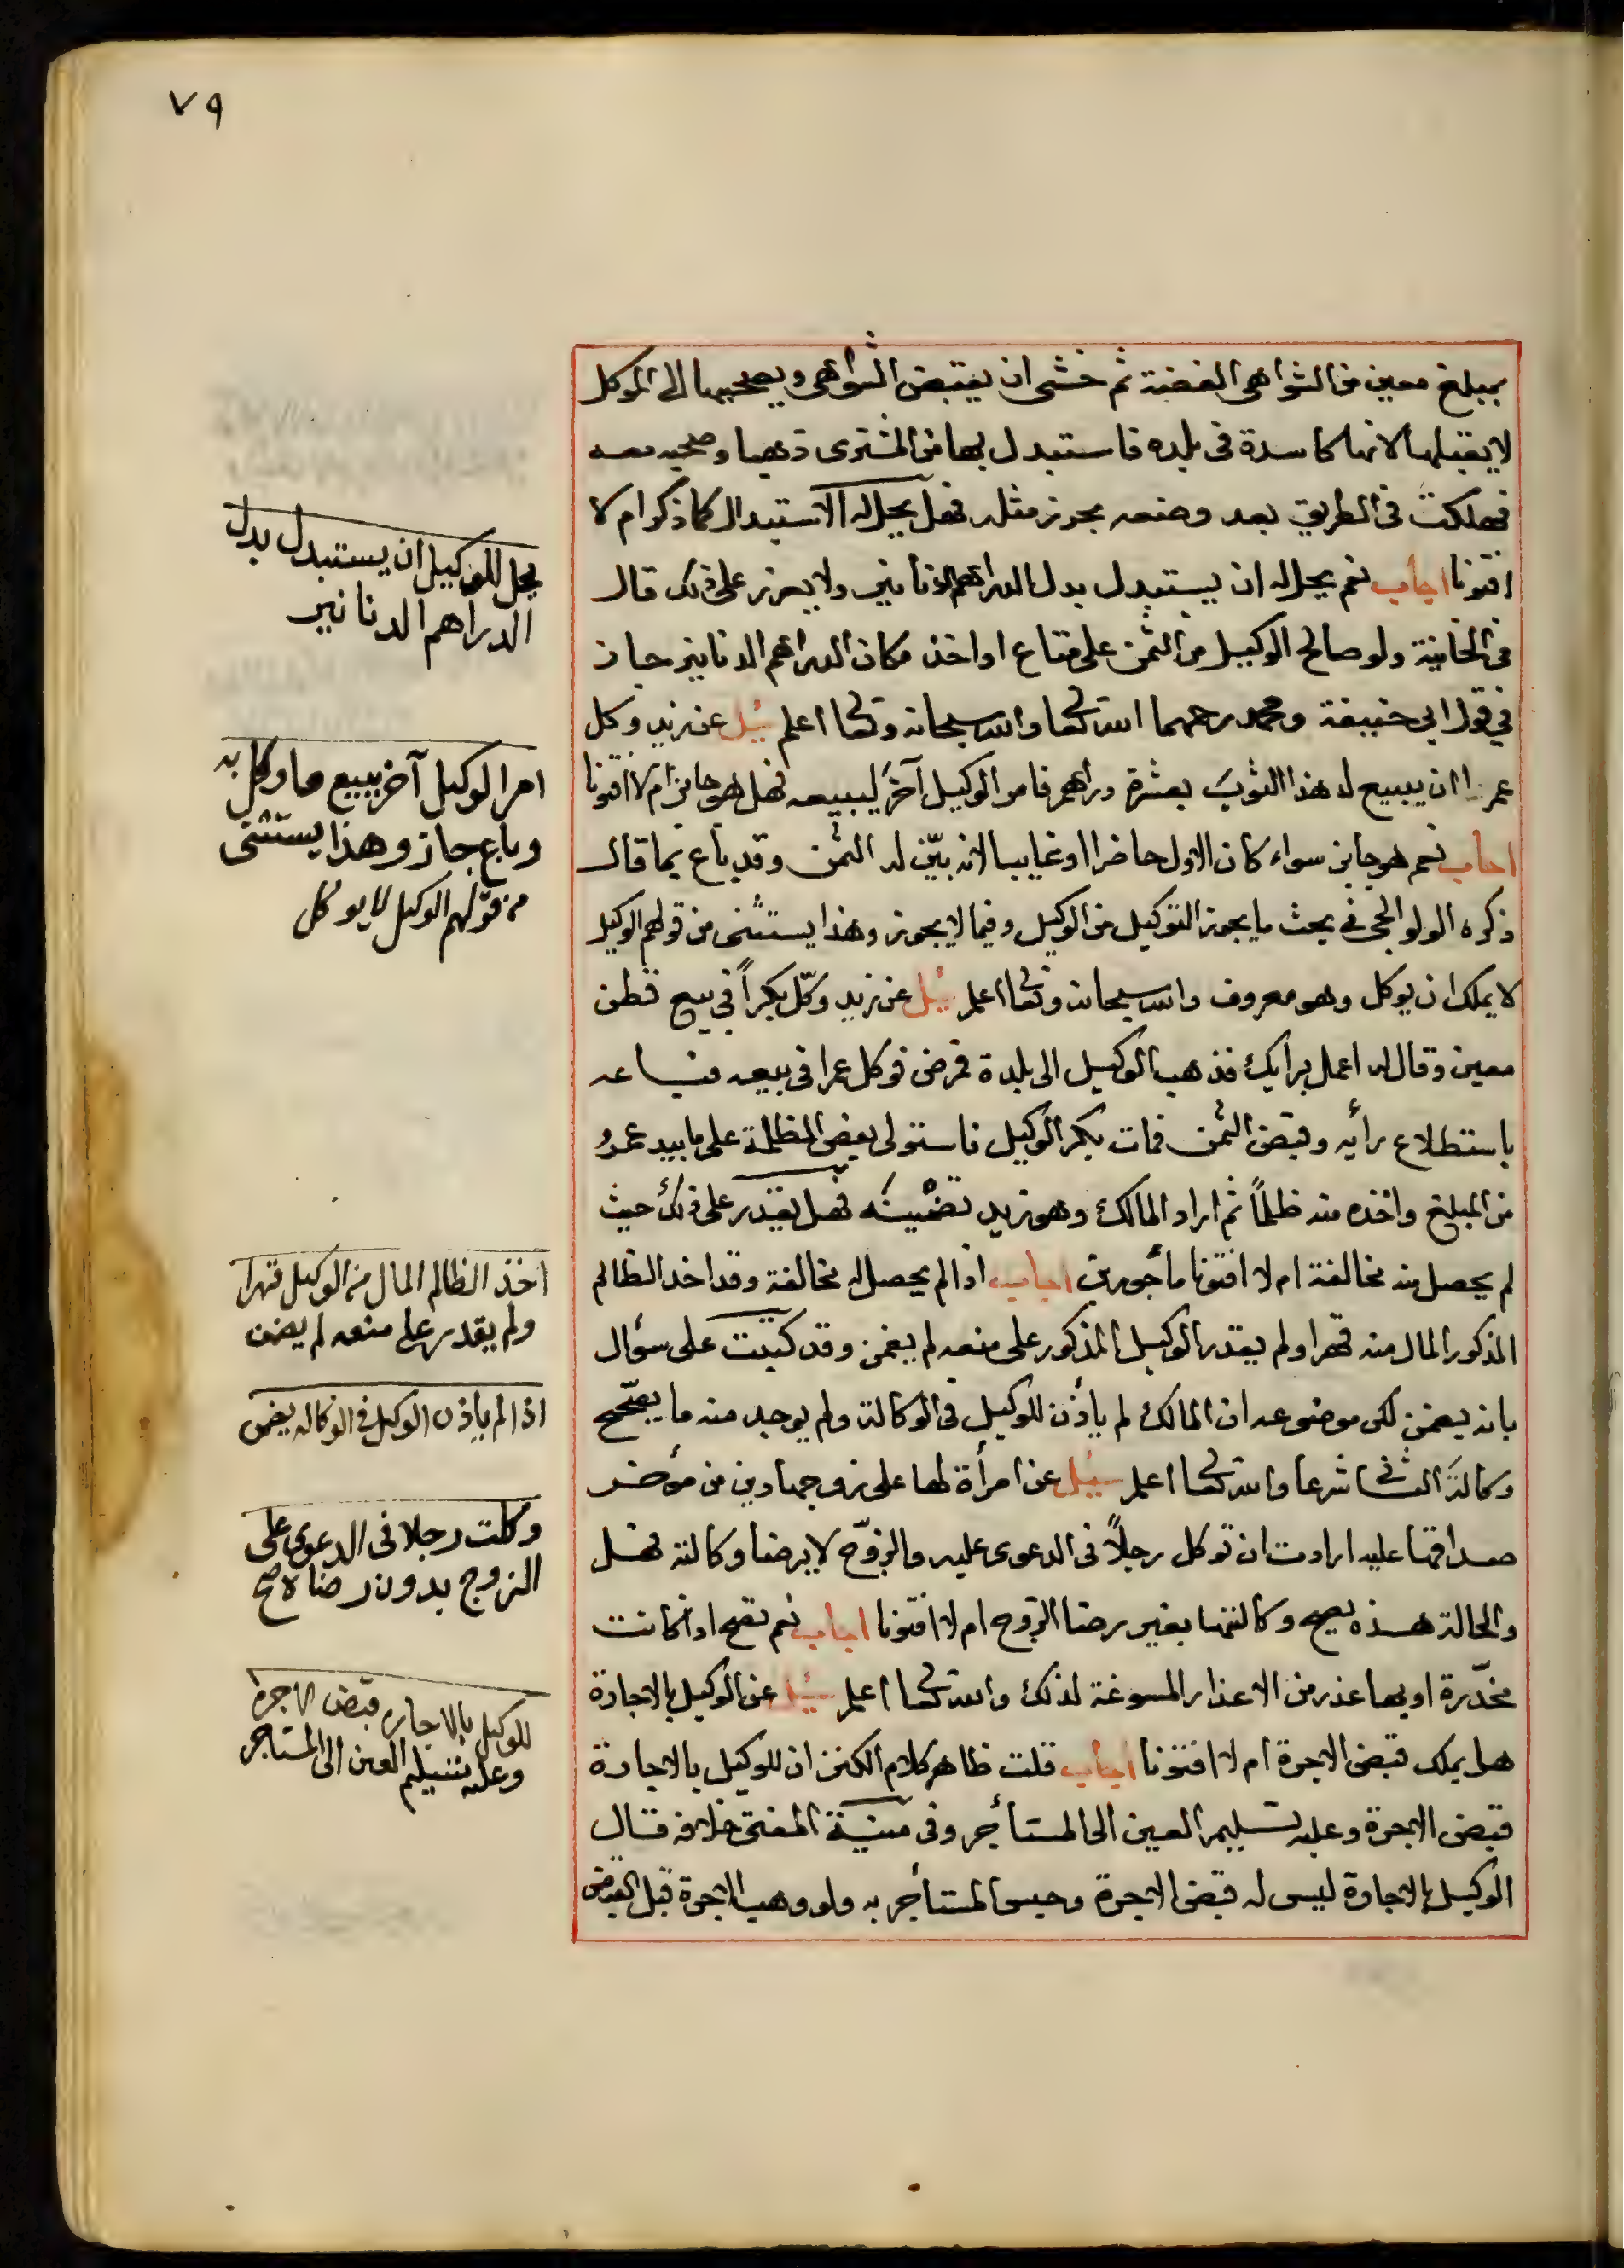 ٧٩
بمبلغ معين من الشواهى الفضة ثم خشى ان يقبض الشواهى ويصحبها الى الموكل
لا يقبلها لانها كاسدة فى بلده فاستبدل بها من المشترى ذهبا وصحبه معه
فهلكت فى الطريق بعد وضعه بحرز مثله فهل يحل له الاستبدال كما ذكر ام لا
افتونا اجاب نعم يحل له ان يستبدل بدل الدراهم الدنانير ولا يعزر على ذلك قال
فى الخانية ولو صالح الوكيل من الثمن على متاع او اخذ مكان الدراهم الدنانير جاز
في قول ابي حنيفة ومحمد رحمهما الله تعالى والله سبحانه وتعالى اعلم سئل عن زيد وكل
عمرا ان يبيع له هذا الثوب بعشرة دراهم فامر الوكيل آخر ليبيعه فهل هو جائز ام لا افتونا
اجاب نعم هو جايز سواء كان الاول حاضرا او غايبا لانه بيّن له الثمن وقد باع بما قال
ذكره الولوالجى فى بحث ما يجوز التوكيل من الوكيل وفيما لا يجوز وهذا يستثنى من قولهم الوكيل
لا يملك ان يوكل وهو معروف والله سبحانه وتعالى اعلم سئل عن زيد وكّل بكراً في بيع قطن
معين وقال له اعمل برأيك فذهب الوكيل الى بلدة فمرض فوكل عمرا فى بيعه فباعه
باستطلاع رأيه وقبض الثمن فمات بكر الوكيل فاستولى بعض الظلمة على ما بيد عمرو
من المبلغ واخذه منه ظلماً ثم اراد المالك وهو زيد تضمينه فهل يقدر على ذلك حيث
لم يحصل منه مخالفة ام لا افتونا مأجورين اجاب اذا لم يحصل له مخالفة وقد اخذ الظالم
المذكور المال منه قهرا ولم يقدر الوكيل المذكور على منعه لم يضمن وقد كتبت على سؤال
بانه يضمن لكن موضوعه ان المالك لم يأذن للوكيل فى الوكالة ولم يوجد منه ما يصحّح
وكالة الثانى شرعا والله تعالى اعلم سئل عن امرأة لها على زوجها دين من مؤخر
صداقها عليه ارادت ان توكل رجلاً فى الدعوى عليه والزوج لا يرضا وكالته فهل
والحالة هذه يصح وكالتها بغير رضا الزوج ام لا افتونا اجاب نعم تصح اذا كانت
مخدّرة او بها عذر من الاعذار المسوغة لذلك والله تعالى اعلم سئل عن الوكيل بالاجارة
هل يملك قبض الاجرة ام لا افتونا اجاب قلت ظاهر كلام الكنز ان للوكيل بالاجارة
قبض الاجرة وعليه تسليم العين الى المستأجر وفى منية المفتى خلافه قال
الوكيل بالاجارة ليس له قبض الاجرة وحبس المستأجر به ولو وهب الاجرة قبل القبض
يحل للوكيل ان يستبدل بدل
الدراهم الدنانير
امر الوكيل آخر ببيع ما وكل به
وباع جاز وهذا يستثنى
من قولهم الوكيل لا يوكل
اخذ الظالم المال من الوكيل قهرا
ولم يقدر على منعه لم يضمن
اذا لم ياذن الوكيل في الوكاله يضمن
وكلت رجلا فى الدعوى على
الزوج بدون رضاه صح
للوكيل بالاجاره قبض الاجرة
وعليه تسليم العين الى المستاجر